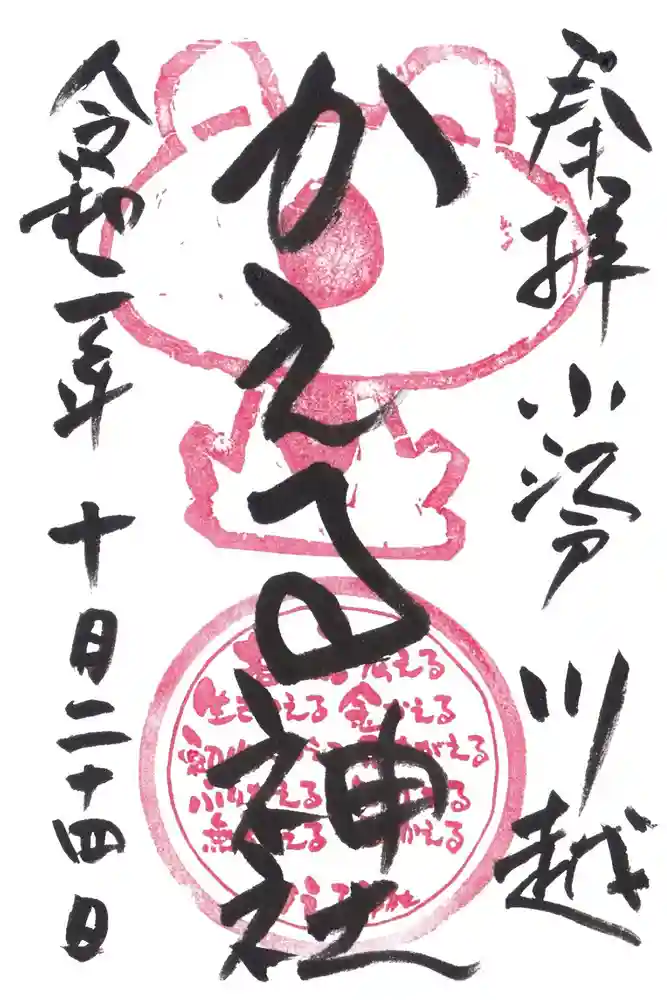 奉拝 小江戸 川越
かえる神社
令和二年 十月二十四日
える
生きかえる 金かえる
える がえる
える える
える かえる